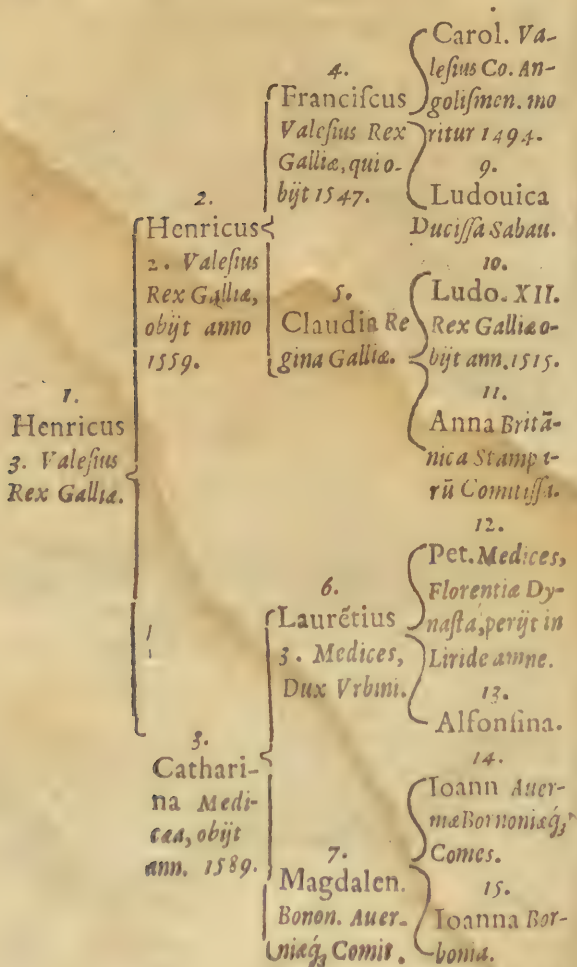 1.
Henricus
3. Valeſius
Rex Galliæ.
2.
Henricus
2. Valeſius
Rex Galliæ,
obijt anno
1559.
3.
Cathari-
na Medi-
cæa, obijt
ann. 1589.
4.
Franciſcus
Valeſius Rex
Galliæ, qui o-
bijt 1547.
5.
Claudia Re
gina Galliæ.
6.
Laurẽtius
3. Medices,
Dux Vrbini.
7.
Magdalen.
Bonon. Auer-
niæq́; Comit.
Carol. Va-
leſius Co. An-
goliſmen. mo
ritur 1494.
9.
Ludouica
Duciſſa Sabau.
10.
Ludo. XII.
Rex Galliæ o-
bijt ann. 1515.
11.
Anna Britã-
nica Stamp
rũ Comitiſſa.
12.
Pet. Medices,
Florentiæ Dy-
naſta, perijt in
Liride amne.
13.
Alfonſina.
14.
Ioann Auer-
niæ Bornoniæq́;
Comes.
15.
Ioanna Bor-
bonia.